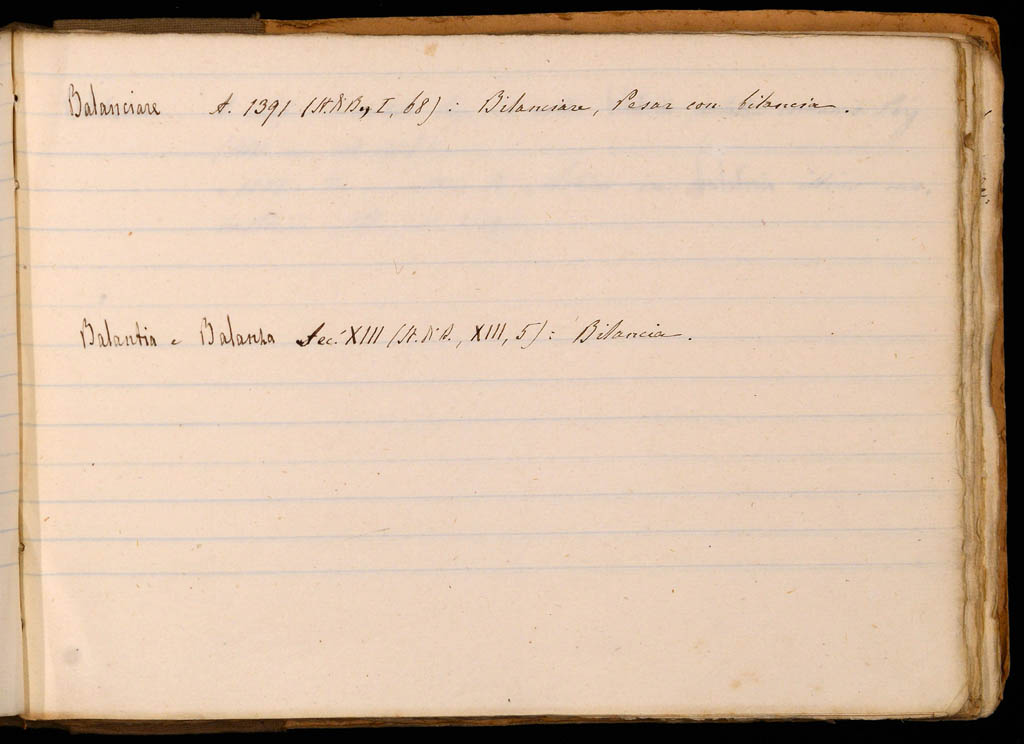 Balanciare A. 1391 (St. di Bg, I, 68) : Bilanciare, Pesar con bilancia .
Balantia e Balanza Sec. XIII (St. di B., XIII, 5) : Bilancia .